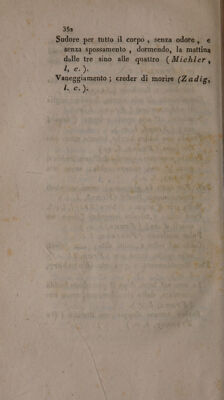 352
Sudore per tutto il corpo, senza odore, e
senza spossamento, dormendo, la mattina
dalle tre sino alle quattro (Michler,
l. c.).
Vaneggiamento; creder di morire (Zadig,
l. c.).